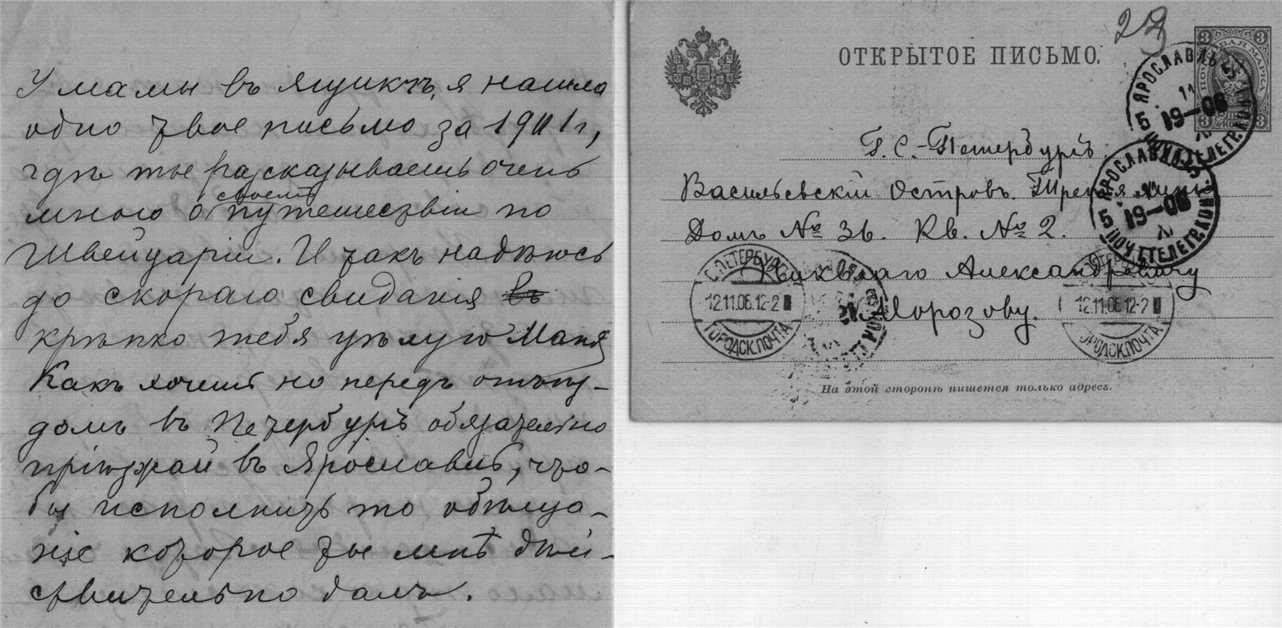 У мамы въ ящикѣ, я нашла
одно твое письмо за 1901 г,
гдѣ ты разсказываешь очень
много о своемъ путешествіи по
Швейцаріи. И такъ надѣюсь
до скораго свиданія въ
крѣпко тебя цѣлую Маня
Какъ хочешь но передъ отъѣз-
домъ въ Петербургъ обязательно
пріѣзжай въ Ярославль, что-
бы исполнить то обѣща-
ніе которое ты мнѣ дѣй-
ствительно далъ.
23
ОТКРЫТОЕ ПИСЬМО.
3 3
ПОЧТОВАЯ МАРКА
ЯРОСЛАВЛЬ
5 19-06
ПОЧ.ТЕЛЕГР.КОН.
Г. С.-Петербургъ.
Васильевскій Островъ. Третья линія
Домъ № 36. Кв. № 2.
ЯРОСЛАВЛЬ
5 19-06
ПОЧ.ТЕЛЕГР.КОН.
Александровичу
Морозову.
С.ПЕТЕРБУРГЪ
12.11.06.12-2
ГОРОДСК.ПОЧТА
С.ПЕТЕРБУРГЪ
12.11.06.12-2
ГОРОДСК.ПОЧТА
На этой сторонѣ пишется только адресъ.